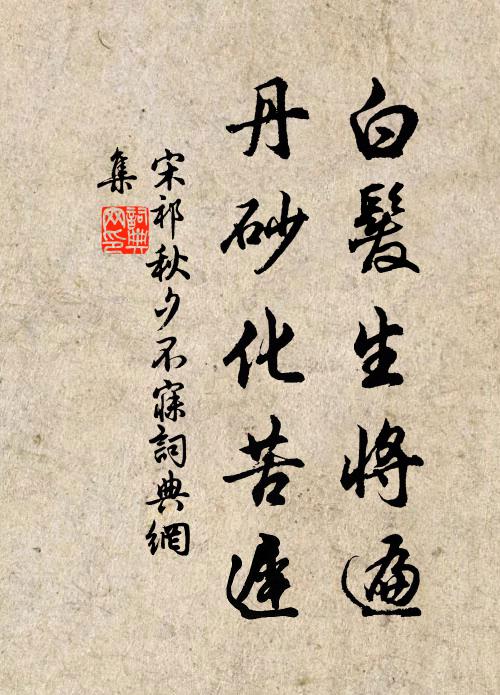 白髮生將遍
丹砂化苦遲
宋祁秋夕不寐詞典網
集
詞典
网印